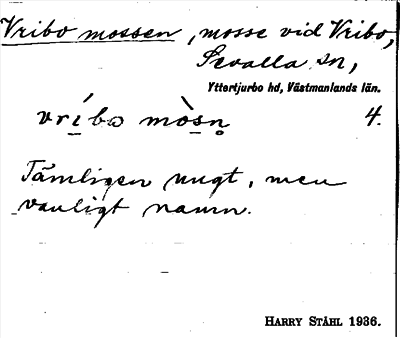 Vribo mossen, mosse vid Vribo,
Sevalla sn,
Yttertjurbo hd, Västmanlands län.
vríbo mòsn̥ 4.
Tämligen ungt, men
vanligt namn.
HARRY STÅHL 1936.